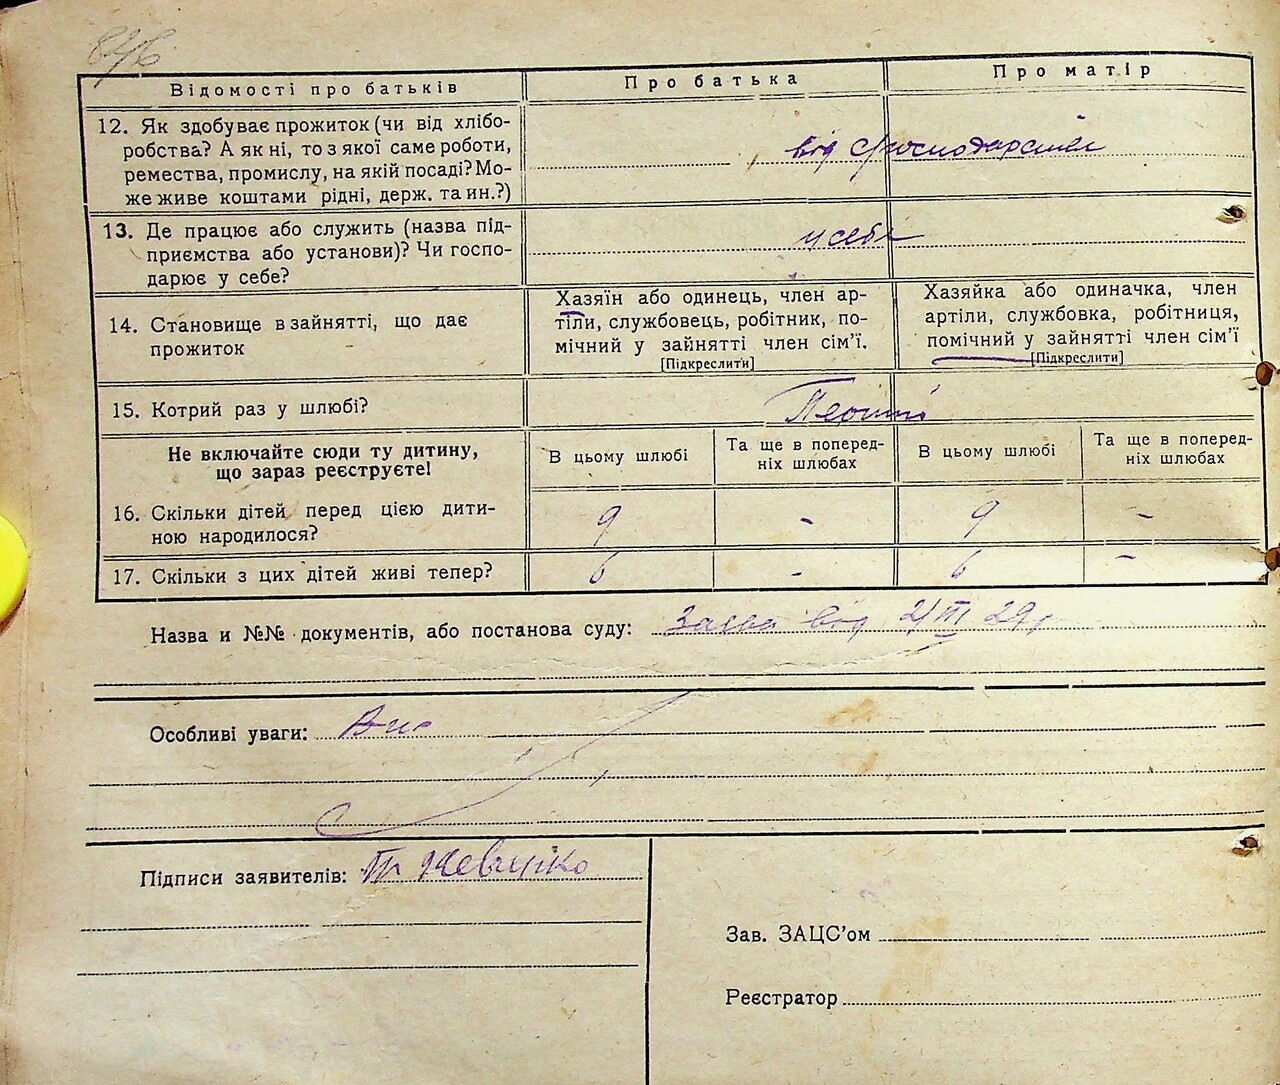 846
Відомості про батьків
Про батька
Про матір
12. Як здобуває прожиток (чи від хлібо-
робства? А як ні, то з якої саме роботи,
ремества, промислу, на якій посаді? Мо-
же живе коштами рідні, держ. та ин.?)
від господарства
13. Де працює або служить (назва під-
приємства або установи)? Чи госпо-
дарює у себе?
у себе
14. Становище в зайнятті, що дає
прожиток
Хазяїн або одинець, член ар-
тіли, службовець, робітник, по-
мічний у зайнятті член сім'ї.
[Підкреслити]
Хазяйка або одиначка, член
артіли, службовка, робітниця,
помічний у зайнятті член сім'ї
[Підкреслити]
15. Котрий раз у шлюбі?
Перший
Не включайте сюди ту дитину,
що зараз реєструєте!
В цьому шлюбі
Та ще в поперед-
ніх шлюбах
В цьому шлюбі
Та ще в поперед-
ніх шлюбах
16. Скільки дітей перед цією дити-
ною народилося?
9 - 9 -
17. Скільки з цих дітей живі тепер?
6 - 6 -
Назва и №№ документів, або постанова суду: Заява від 21/III 29 р
Особливі уваги:
Підписи заявителів:
Зав. ЗАЦС'ом
Реєстратор